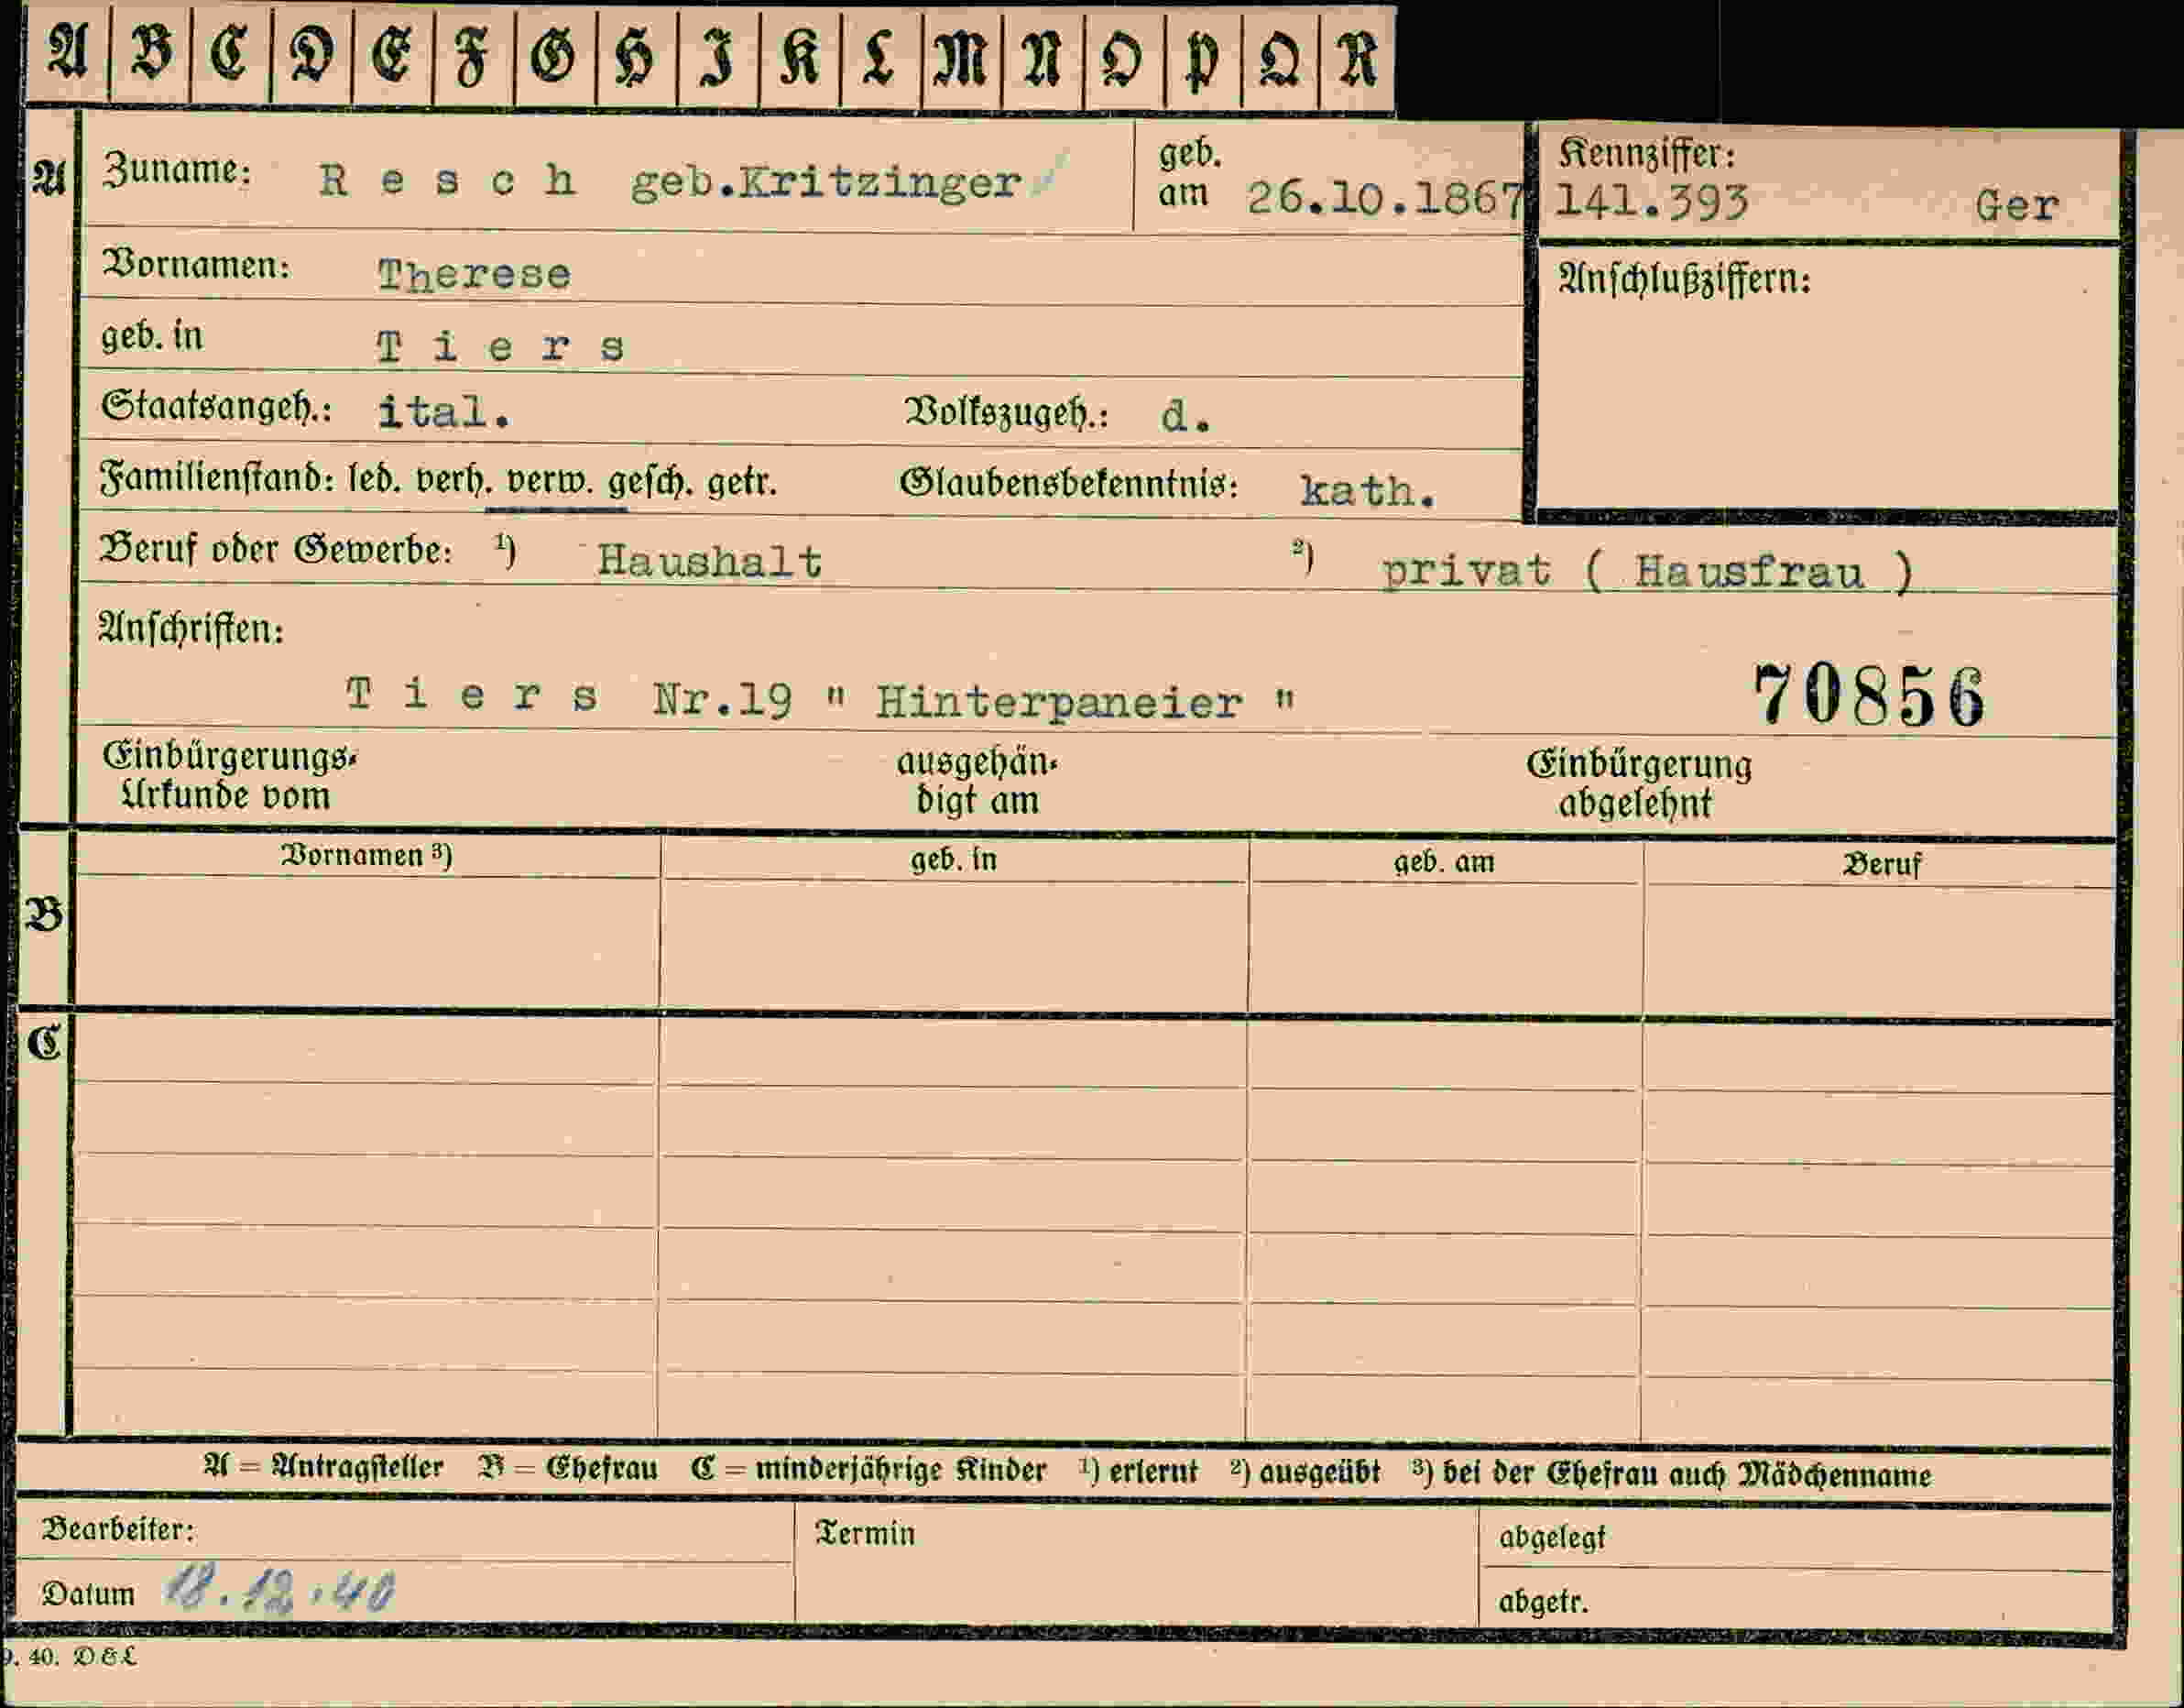 A B C D E F G H I K L M N O P Q R
A Zuname: R e s c h geb.Kritzinger geb. am 26.10.1867 Kennziffer: 141.393 Ger
Vornamen: Therese Anschlußziffern:
geb. in T i e r s
Staatsangeh.: ital. Volkszugeh.: d.
Familienstand: led. verh. verw. gesch. getr. Glaubensbekenntnis: kath.
Beruf oder Gewerbe: ¹) Haushalt ²) privat ( Hausfrau )
Anschriften:
T i e r s Nr.19 " Hinterpaneier " 70856
Einbürgerungs- ausgehän- Einbürgerung
Urkunde vom digt am abgelehnt
Vornamen ³) geb. in geb. am Beruf
B
C
A = Antragsteller B = Ehefrau C = minderjährige Kinder ¹) erlernt ²) ausgeübt ³) bei der Ehefrau auch Mädchenname
Bearbeiter: Termin abgelegt
Datum 18.12.40 abgetr.
9. 40. D&L